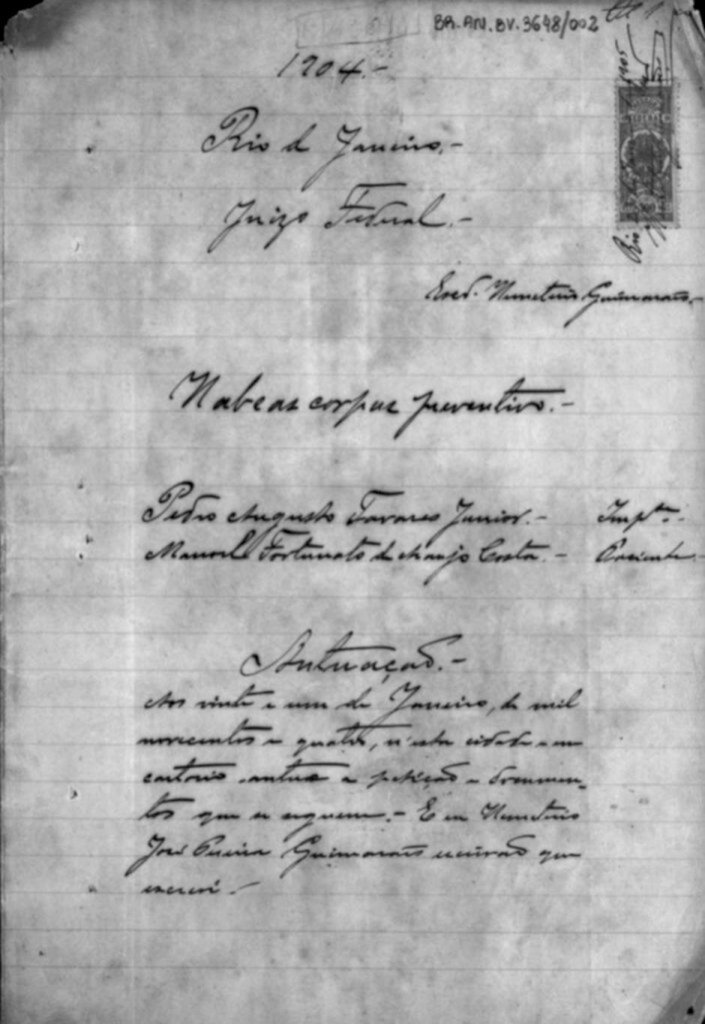 BR.AN.BV.3648/002
1904.-
Rio de Janeiro.-
Juizo Federal.-
Escr. Hemeterio Guimarães.-
Habeas corpus preventivo.-
Pedro Augusto Tavares Junior.- Impte.-
Manoel Fortunato de Araujo Costa.- Paciente.-
Autuação.-
Aos vinte e um de Janeiro, de mil
novecentos e quatro, n'esta cidade e em
cartorio autuo a petição e documen-
tos que se seguem.- E eu Hemeterio
José Pereira Guimarães escrivão que
escrevi.-